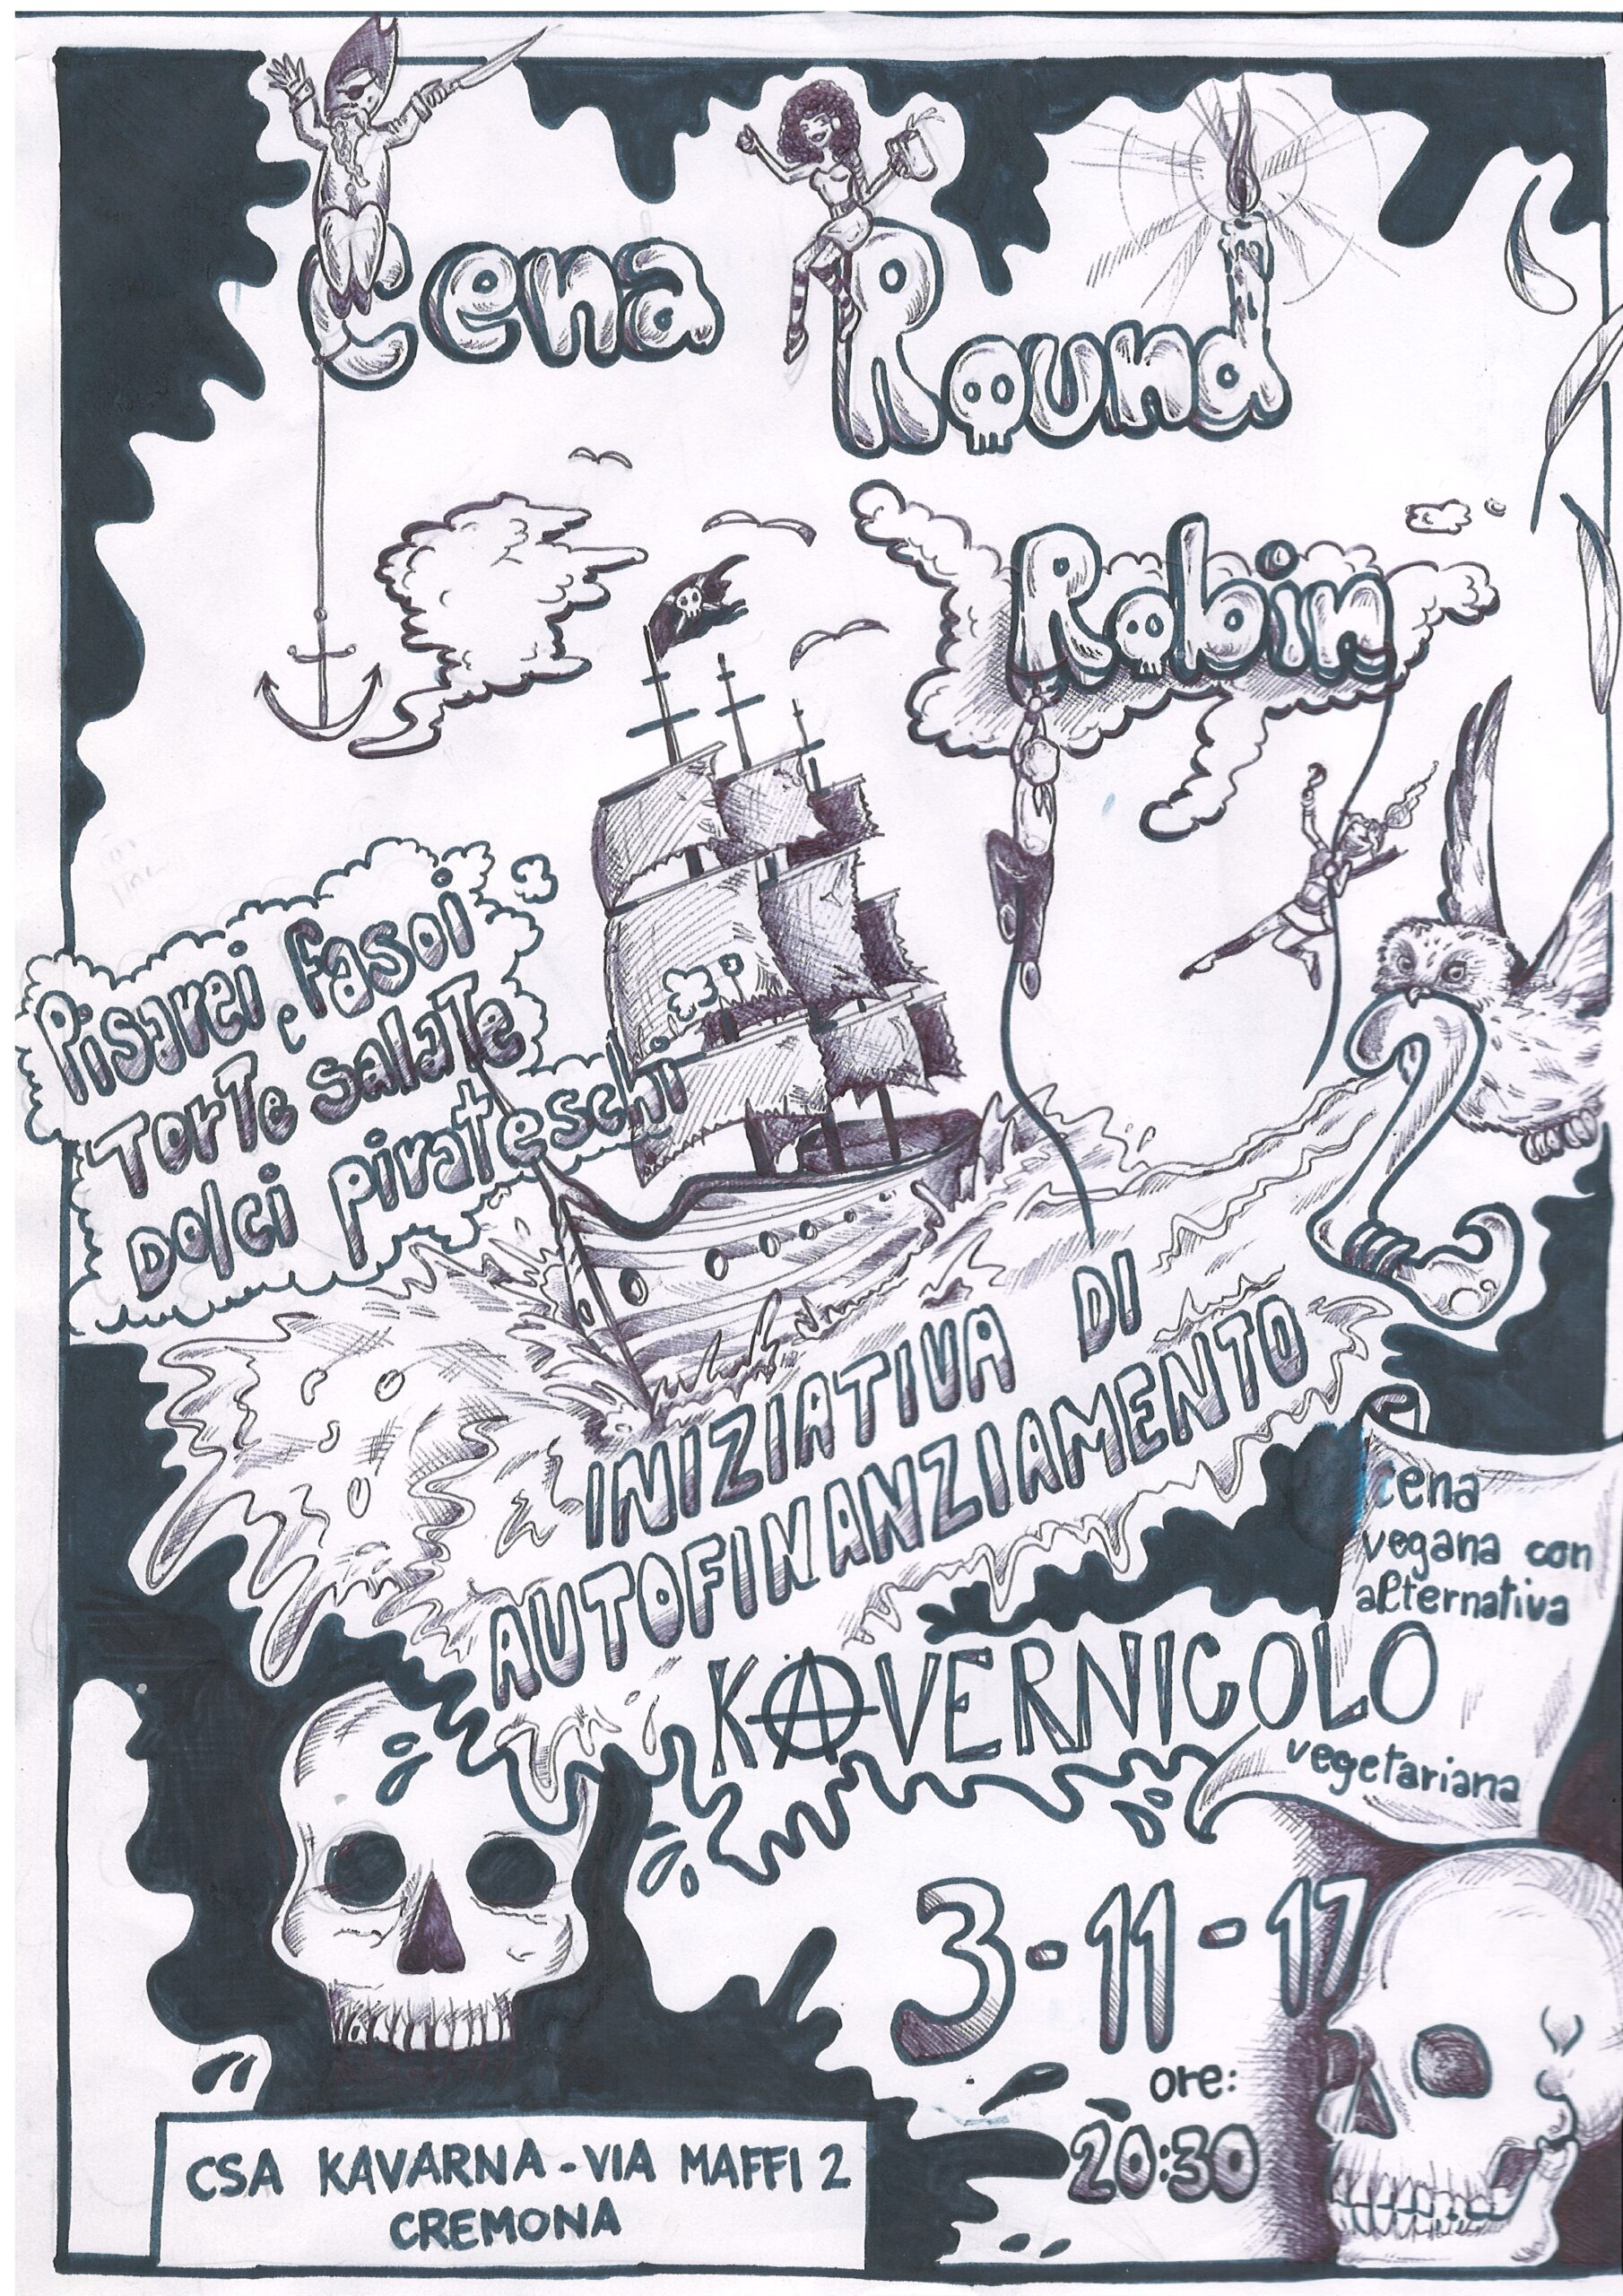 Cena Round
Robin
Pisarei e fasoi
Torte salate
Dolci pirateschi
INIZIATIVA DI
AUTOFINANZIAMENTO
KAVERNICOLO
cena
vegana con
alternativa
vegetariana
3-11-17
ore:
20:30
CSA KAVARNA - VIA MAFFI 2
CREMONA